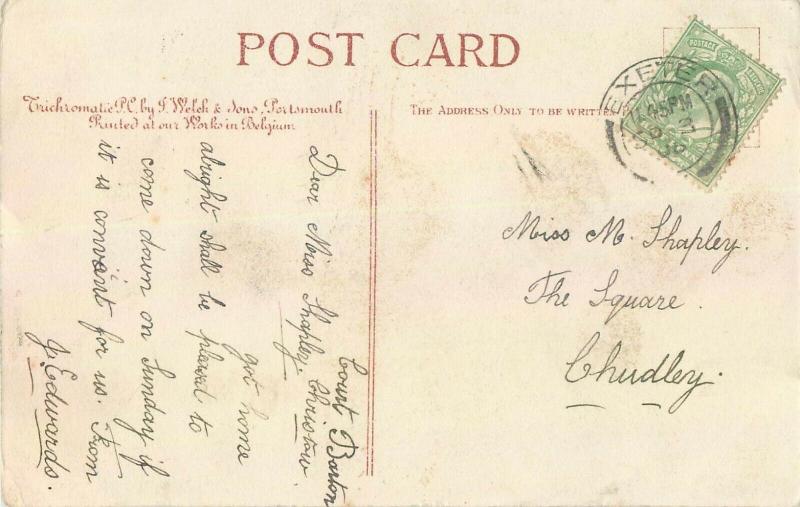 POST CARD
Trichromatic P.C. by J. Welch & Sons, Portsmouth
Printed at our Works in Belgium
THE ADDRESS ONLY TO BE WRITTEN
POSTAGE
EXETER
45PM
Court Barton
Christow.
Dear Miss Shapley.
got home
alright shall be pleased to
come down on Sunday if
it is convient for us. From
J. Edwards.
Miss M. Shapley.
The Square.
Chudley.